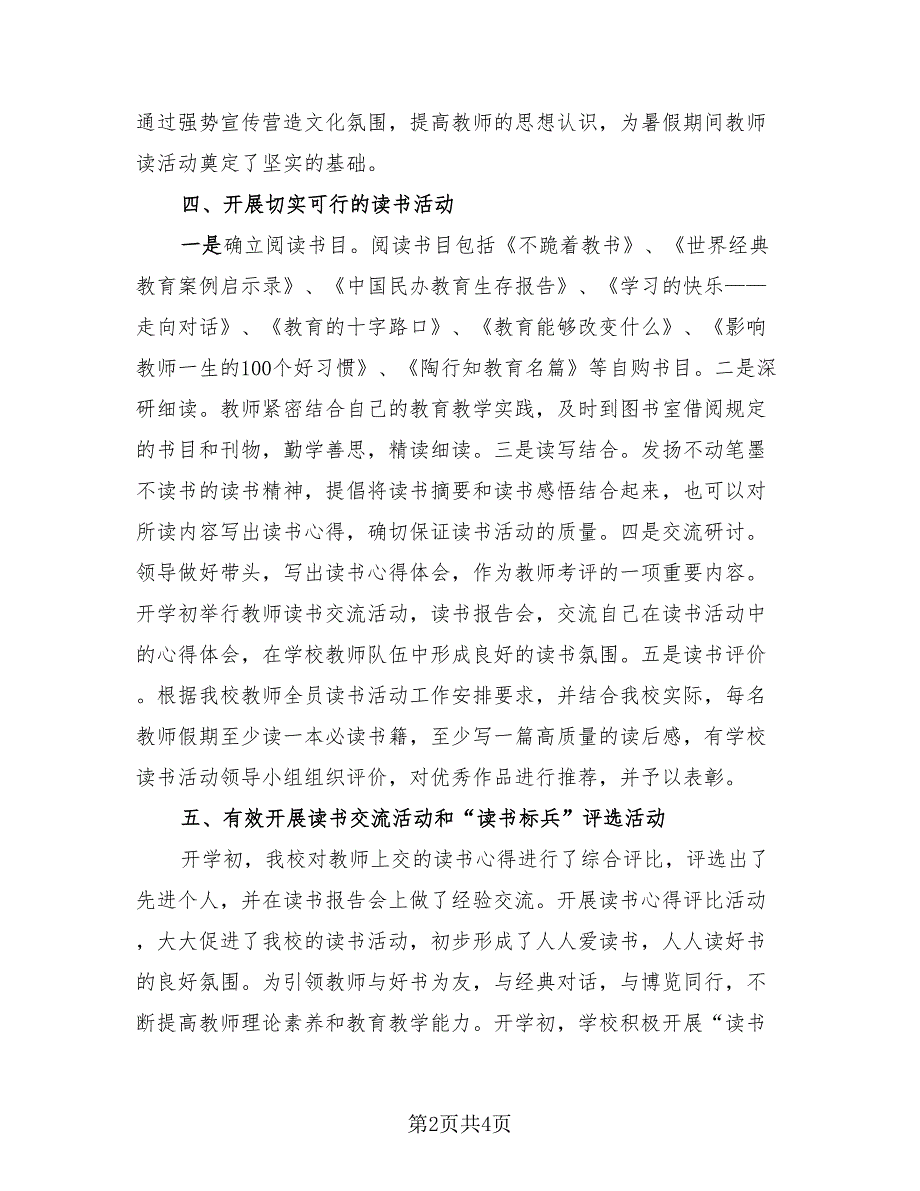 通过强势宣传营造文化氛围，提高教师的思想认识，为暑假期间教师
读活动奠定了坚实的基础。
四、开展切实可行的读书活动
一是确立阅读书目。阅读书目包括《不跪着教书》、《世界经典
教育案例启示录》、《中国民办教育生存报告》、《学习的快乐——
走向对话》、《教育的十字路口》、《教育能够改变什么》、《影响
教师一生的100个好习惯》、《陶行知教育名篇》等自购书目。二是深
研细读。教师紧密结合自己的教育教学实践，及时到图书室借阅规定
的书目和刊物，勤学善思，精读细读。三是读写结合。发扬不动笔墨
不读书的读书精神，提倡将读书摘要和读书感悟结合起来，也可以对
所读内容写出读书心得，确切保证读书活动的质量。四是交流研讨。
领导做好带头，写出读书心得体会，作为教师考评的一项重要内容。
开学初举行教师读书交流活动，读书报告会，交流自己在读书活动中
的心得体会，在学校教师队伍中形成良好的读书氛围。五是读书评价
。根据我校教师全员读书活动工作安排要求，并结合我校实际，每名
教师假期至少读一本必读书籍，至少写一篇高质量的读后感，有学校
读书活动领导小组组织评价，对优秀作品进行推荐，并予以表彰。
五、有效开展读书交流活动和“读书标兵”评选活动
开学初，我校对教师上交的读书心得进行了综合评比，评选出了
先进个人，并在读书报告会上做了经验交流。开展读书心得评比活动
，大大促进了我校的读书活动，初步形成了人人爱读书，人人读好书
的良好氛围。为引领教师与好书为友，与经典对话，与博览同行，不
断提高教师理论素养和教育教学能力。开学初，学校积极开展“读书
第2页共4页